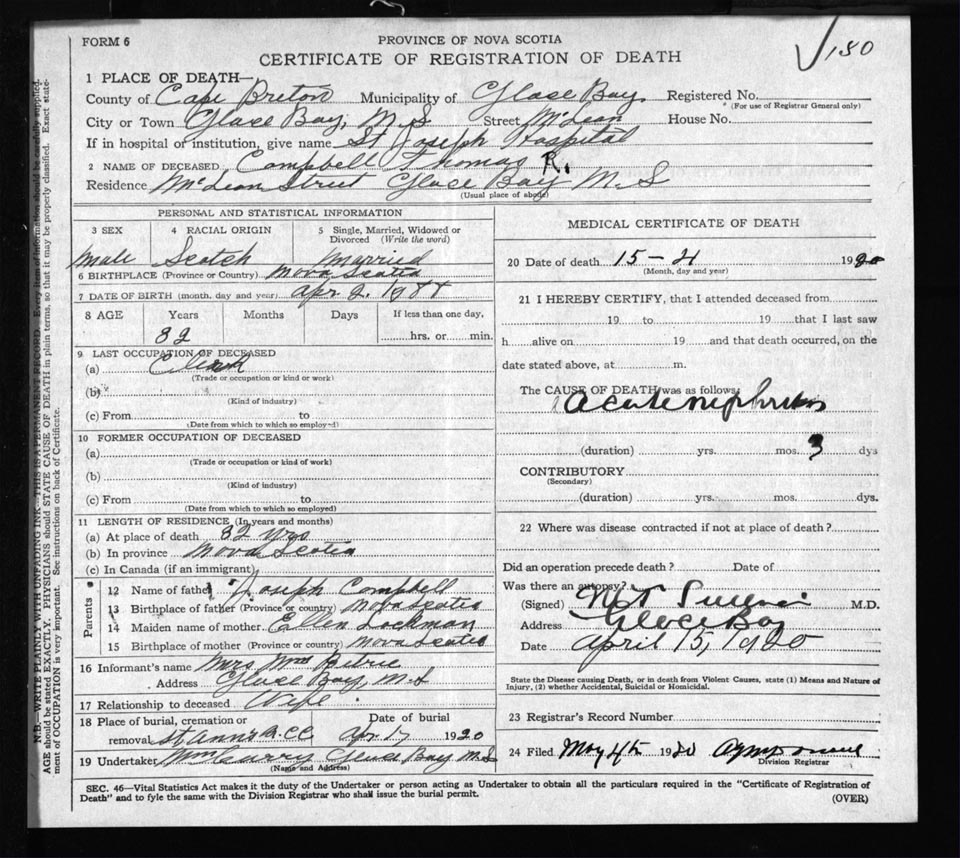 FORM 6
PROVINCE OF NOVA SCOTIA
√180
CERTIFICATE OF REGISTRATION OF DEATH
1 PLACE OF DEATH—
County of Cape Breton Municipality of Glace Bay. Registered No.
(For use of Registrar General only)
City or Town Glace Bay, N S Street McLean House No.
If in hospital or institution, give name St Joseph Hospital
2 NAME OF DECEASED Campbell Thomas R.
Residence McLean Street Glace Bay N S
(Usual place of abode)
PERSONAL AND STATISTICAL INFORMATION
3 SEX 4 RACIAL ORIGIN 5 Single, Married, Widowed or Divorced (Write the word)
Male Scotch Married
6 BIRTHPLACE (Province or Country) Nova Scotia
7 DATE OF BIRTH (month, day and year) Apr 2,
8 AGE Years Months Days If less than one day,
82 hrs. or min.
9 LAST OCCUPATION OF DECEASED
(a) Clerk
(Trade or occupation or kind or work)
(b)
(Kind of industry)
(c) From to
(Date from which to which so employed)
10 FORMER OCCUPATION OF DECEASED
(a)
(Trade or occupation or kind of work)
(b)
(Kind of industry)
(c) From to
(Date from which to which so employed)
11 LENGTH OF RESIDENCE (In years and months)
(a) At place of death 82 yrs
(b) In province Nova Scotia
(c) In Canada (if an immigrant)
Parents
12 Name of father Joseph Campbell
13 Birthplace of father (Province or country) Nova Scotia
14 Maiden name of mother Ellen
15 Birthplace of mother (Province or country) Nova Scotia
16 Informant's name Mrs
Address Glace Bay, N S
17 Relationship to deceased Wife
18 Place of burial, cremation or Date of burial
removal St Anns Apr 17 1920
19 Undertaker Glace Bay N S
(Name and Address)
MEDICAL CERTIFICATE OF DEATH
20 Date of death 15-4 1920
(Month, day and year)
21 I HEREBY CERTIFY, that I attended deceased from
19 to 19 that I last saw
h alive on 19 and that death occurred, on the
date stated above, at m.
The CAUSE OF DEATH was as follows:
Acute nephritis
(duration) yrs. mos. 3 dys
CONTRIBUTORY
(Secondary)
(duration) yrs. mos. dys.
22 Where was disease contracted if not at place of death?
Did an operation precede death? Date of
Was there an autopsy?
(Signed) M.D.
Address Glace Bay
Date April 15, 1920
State the Disease causing Death, or in death from Violent Causes, state (1) Means and Nature of
Injury, (2) whether Accidental, Suicidal or Homicidal.
23 Registrar's Record Number
24 Filed May 4th 1920
Division Registrar
SEC. 46—Vital Statistics Act makes it the duty of the Undertaker or person acting as Undertaker to obtain all the particulars required in the "Certificate of Registration of
Death" and to fyle the same with the Division Registrar who shall issue the burial permit.
(OVER)
N.B.—WRITE PLAINLY WITH UNFADING INK—THIS IS A PERMANENT RECORD. Every item of information should be carefully supplied.
AGE should be stated EXACTLY. PHYSICIANS should STATE CAUSE OF DEATH in plain terms, so that it may be properly classified. Exact state-
ment of OCCUPATION is very important. See instructions on back of Certificate.